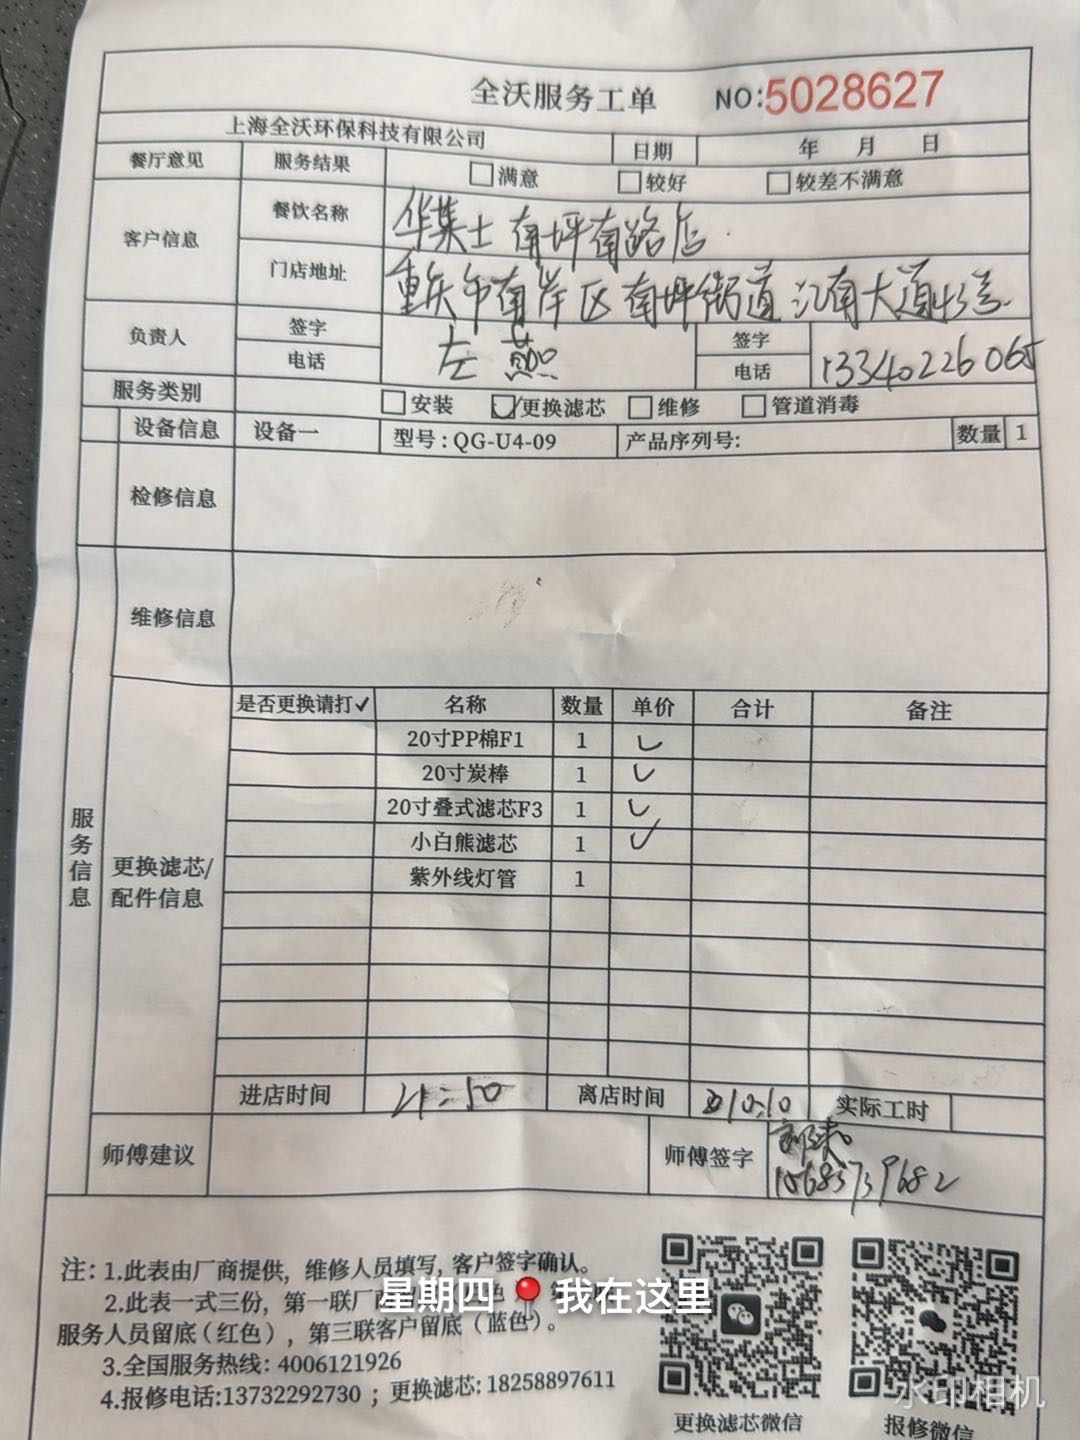 全沃服务工单 NO:5028627
上海全沃环保科技有限公司 日期 年 月 日
餐厅意见 服务结果 满意 较好 较差不满意
客户信息 餐饮名称 华莱士南坪南路店
门店地址 重庆市南岸区南坪街道江南大道43号
负责人 签字 左燕 签字
电话 电话 13340226065
服务类别 安装 ✓更换滤芯 维修 管道消毒
设备信息 设备一 型号:QG-U4-09 产品序列号: 数量 1
检修信息
维修信息
服务信息
更换滤芯/
配件信息
是否更换请打✓ 名称 数量 单价 合计 备注
20寸PP棉F1 1 ✓
20寸炭棒 1 ✓
20寸叠式滤芯F3 1 ✓
小白熊滤芯 1 ✓
紫外线灯管 1
进店时间 21:50 离店时间 10:10 实际工时
师傅建议 师傅签字
15683739682
注: 1.此表由厂商提供, 维修人员填写, 客户签字确认。
2.此表一式三份, 第一联厂商
服务人员留底(红色), 第三联客户留底(蓝色)。
3.全国服务热线: 4006121926
4.报修电话:13732292730 ; 更换滤芯: 18258897611
更换滤芯微信 报修微信
星期四 📍 我在这里
水印相机